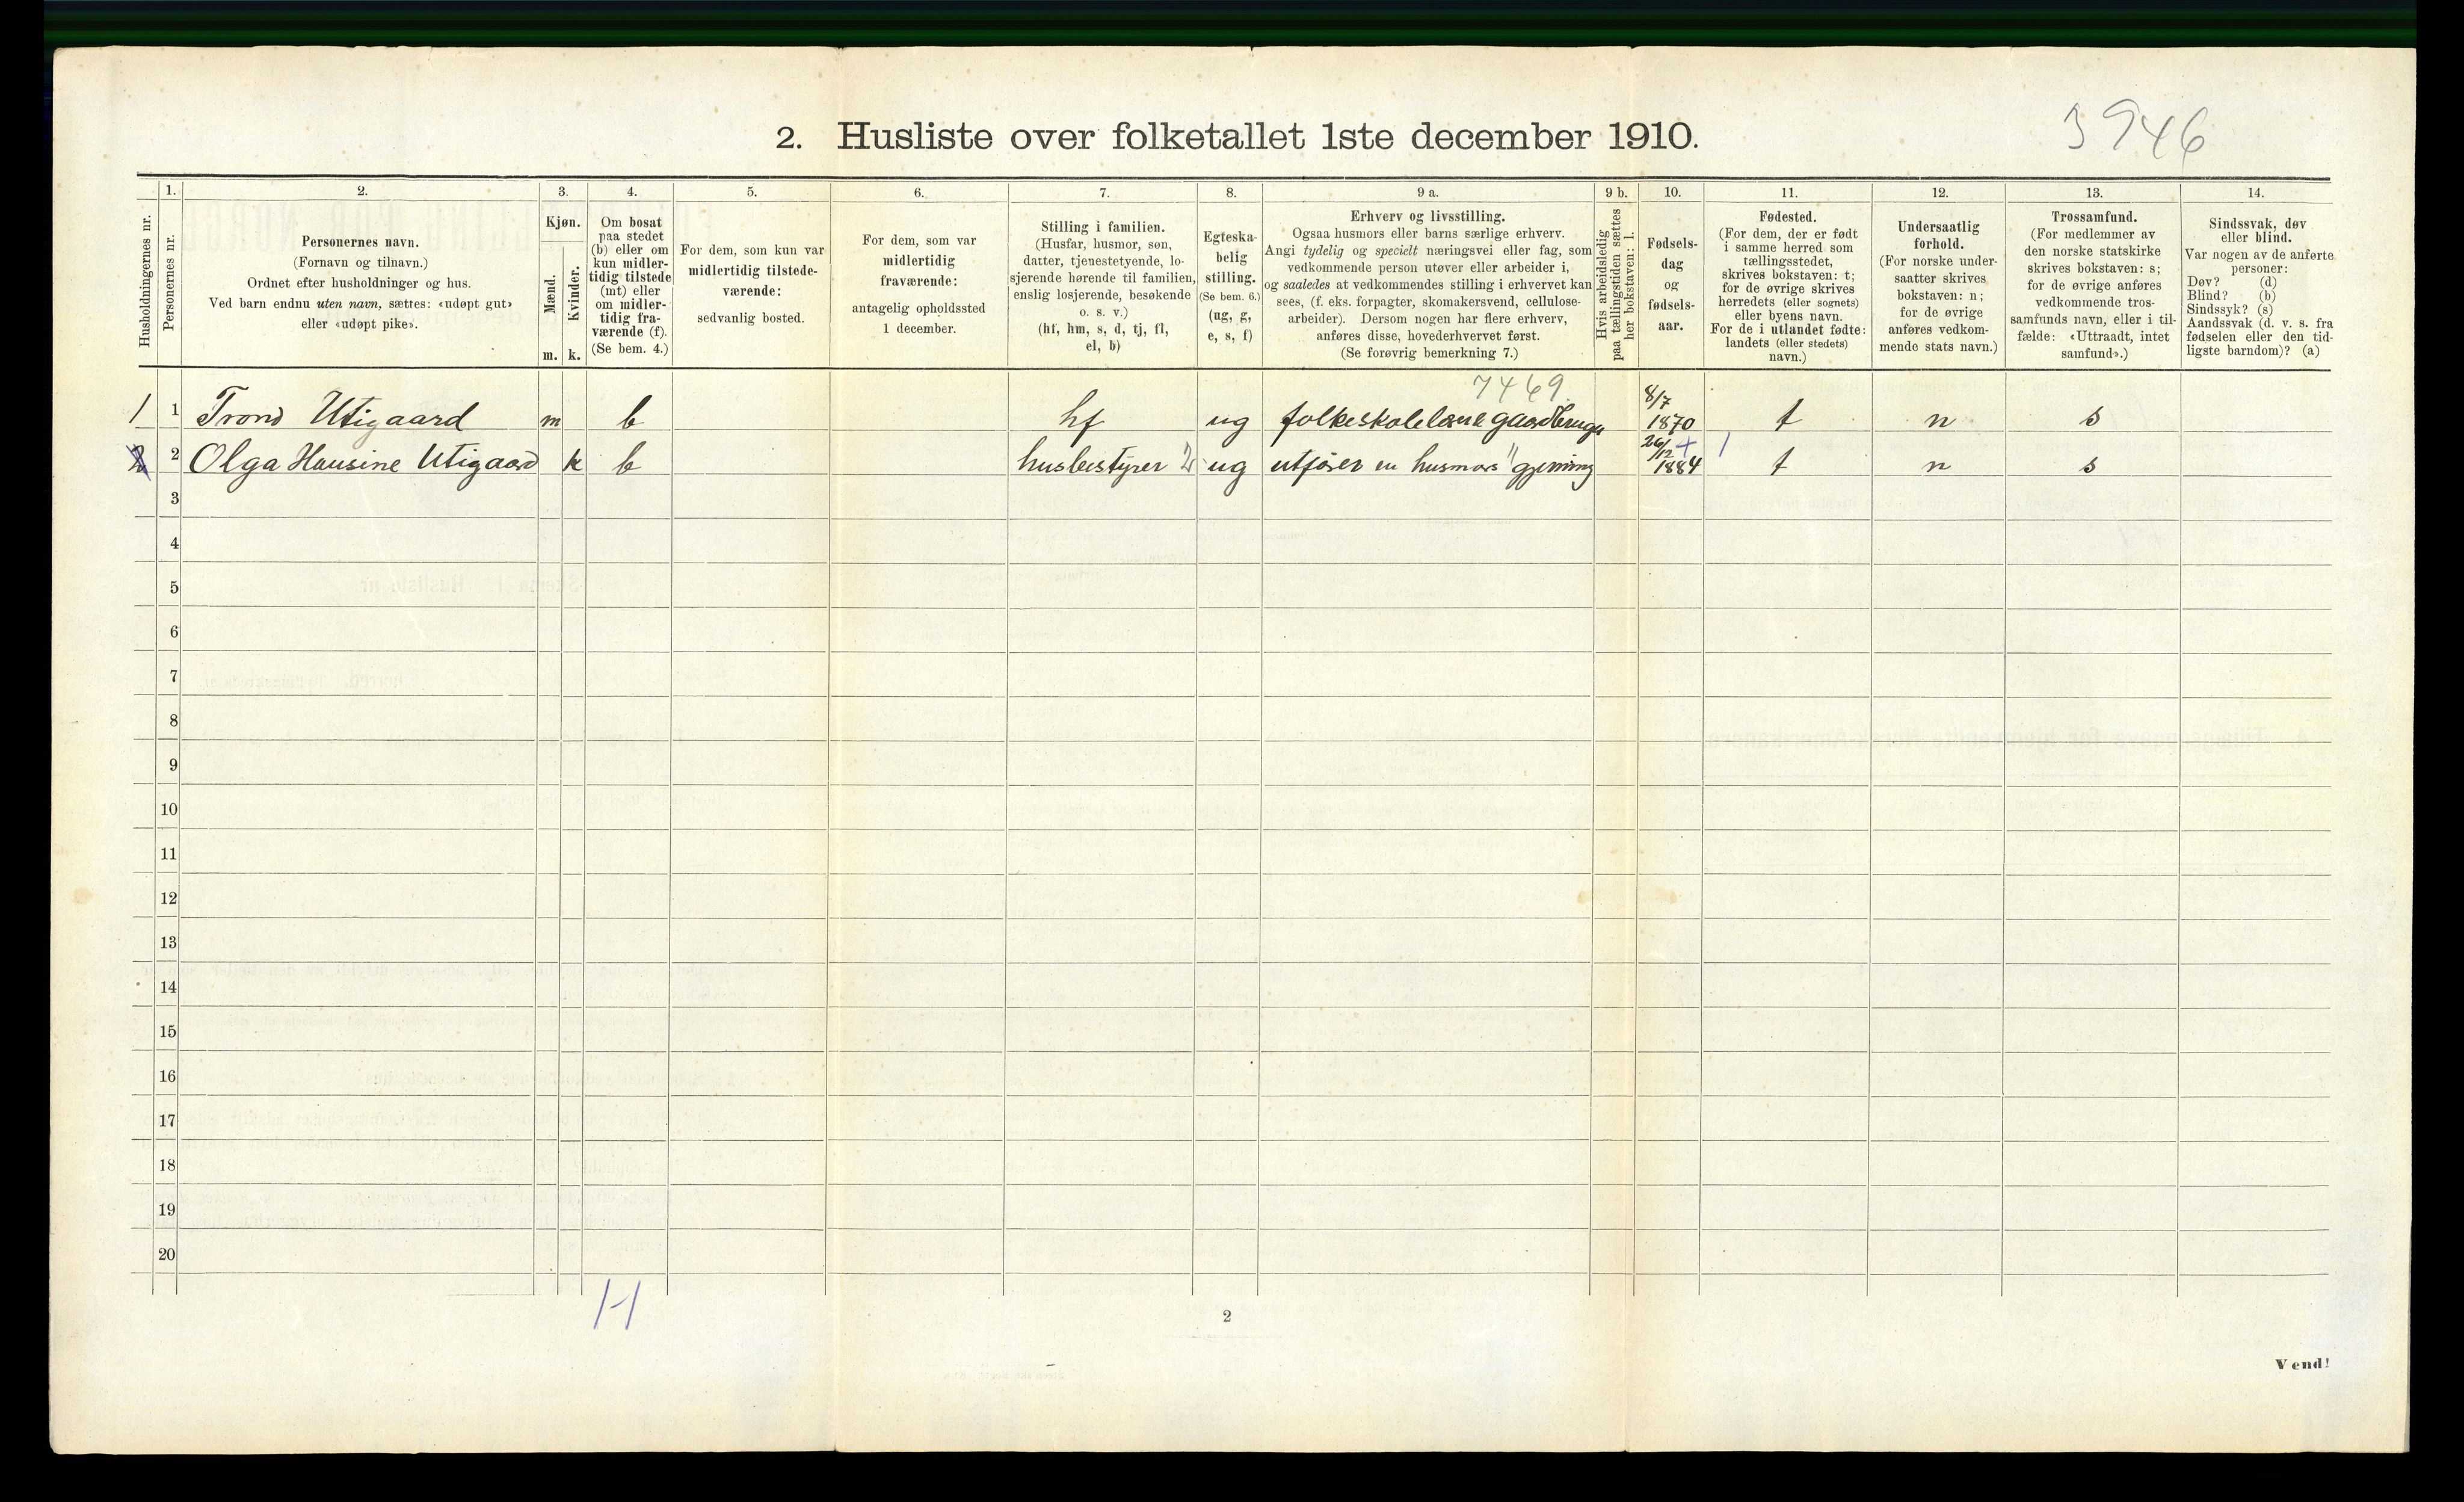 3946
2. Husliste over folketallet 1ste december 1910.
1. 2. 3. 4. 5. 6. 7. 8. 9 a. 9 b. 10. 11. 12. 13. 14.
Husholdningernes nr.
Personernes nr.
Personernes navn.
(Fornavn og tilnavn.)
Ordnet efter husholdninger og hus.
Ved barn endnu uten navn, sættes: «udøpt gut»
eller «udøpt pike».
Kjøn.
Mænd.
Kvinder.
m. k.
Om bosat
paa stedet
(b) eller om
kun midler-
tidig tilstede
(mt) eller
om midler-
tidig fra-
værende (f).
(Se bem. 4.)
For dem, som kun var
midlertidig tilstede-
værende:
sedvanlig bosted.
For dem, som var
midlertidig
fraværende:
antagelig opholdssted
1 december.
Stilling i familien.
(Husfar, husmor, søn,
datter, tjenestetyende, lo-
sjerende hørende til familien,
enslig losjerende, besøkende
o. s. v.)
(hf, hm, s, d, tj, fl,
el, b)
Egteska-
belig
stilling.
(Se bem. 6.)
(ug, g,
e, s, f)
Erhverv og livsstilling.
Ogsaa husmors eller barns særlige erhverv.
Angi tydelig og specielt næringsvei eller fag, som
vedkommende person utøver eller arbeider i,
og saaledes at vedkommendes stilling i erhvervet kan
sees, (f. eks. forpagter, skomakersvend, cellulose-
arbeider). Dersom nogen har flere erhverv,
anføres disse, hovederhvervet først.
(Se forøvrig bemerkning 7.)
Hvis arbeidsledig
paa tællingstiden sættes
her bokstaven: l.
Fødsels-
dag
og
fødsels-
aar.
Fødested.
(For dem, der er født
i samme herred som
tællingsstedet,
skrives bokstaven: t;
for de øvrige skrives
herredets (eller sognets)
eller byens navn.
For de i utlandet fødte:
landets (eller stedets)
navn.)
Undersaatlig
forhold.
(For norske under-
saatter skrives
bokstaven: n;
for de øvrige
anføres vedkom-
mende stats navn.)
Trossamfund.
(For medlemmer av
den norske statskirke
skrives bokstaven: s;
for de øvrige anføres
vedkommende tros-
samfunds navn, eller i til-
fælde: «Uttraadt, intet
samfund».)
Sindssvak, døv
eller blind.
Var nogen av de anførte
personer:
Døv? (d)
Blind? (b)
Sindssyk? (s)
Aandssvak (d. v. s. fra
fødselen eller den tid-
ligste barndom)? (a)
7469
1 1 Trond Utigaard m b hf ug folkeskolelærer gaardbruger 8/7 1870 t n s
2 2 Olga Hansine Utigaard k b husbestyrer 2 ug utfører en husmors gjerning 26/12 + 1884 1 t n s
3
4
5
6
7
8
9
10
11
12
13
14
15
16
17
18
19
20
1-1
2
Vend!